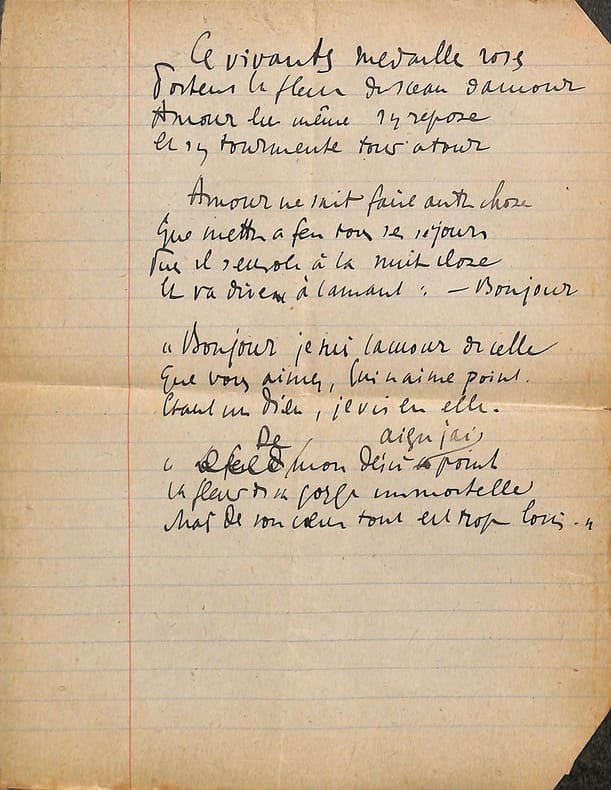 Ce vivants medaille roses
Portent la fleur du sceau d'amour
Amour lui même s'y repose
Et s'y tourmente tour a tour
Amour ne sait faire autre chose
Que mettre a feu tous ses séjours
Puis il s'envole à la nuit close
Et va dire à l'amant : — Bonjour
" Bonjour je suis l'amour de celle
Que vous aimez, qui n'aime point.
Etant un Dieu, je vis en elle.
De aigu j'ai
" mon désir point
La fleur de sa gorge immortelle
Mais de son cœur tout est trop loin. "